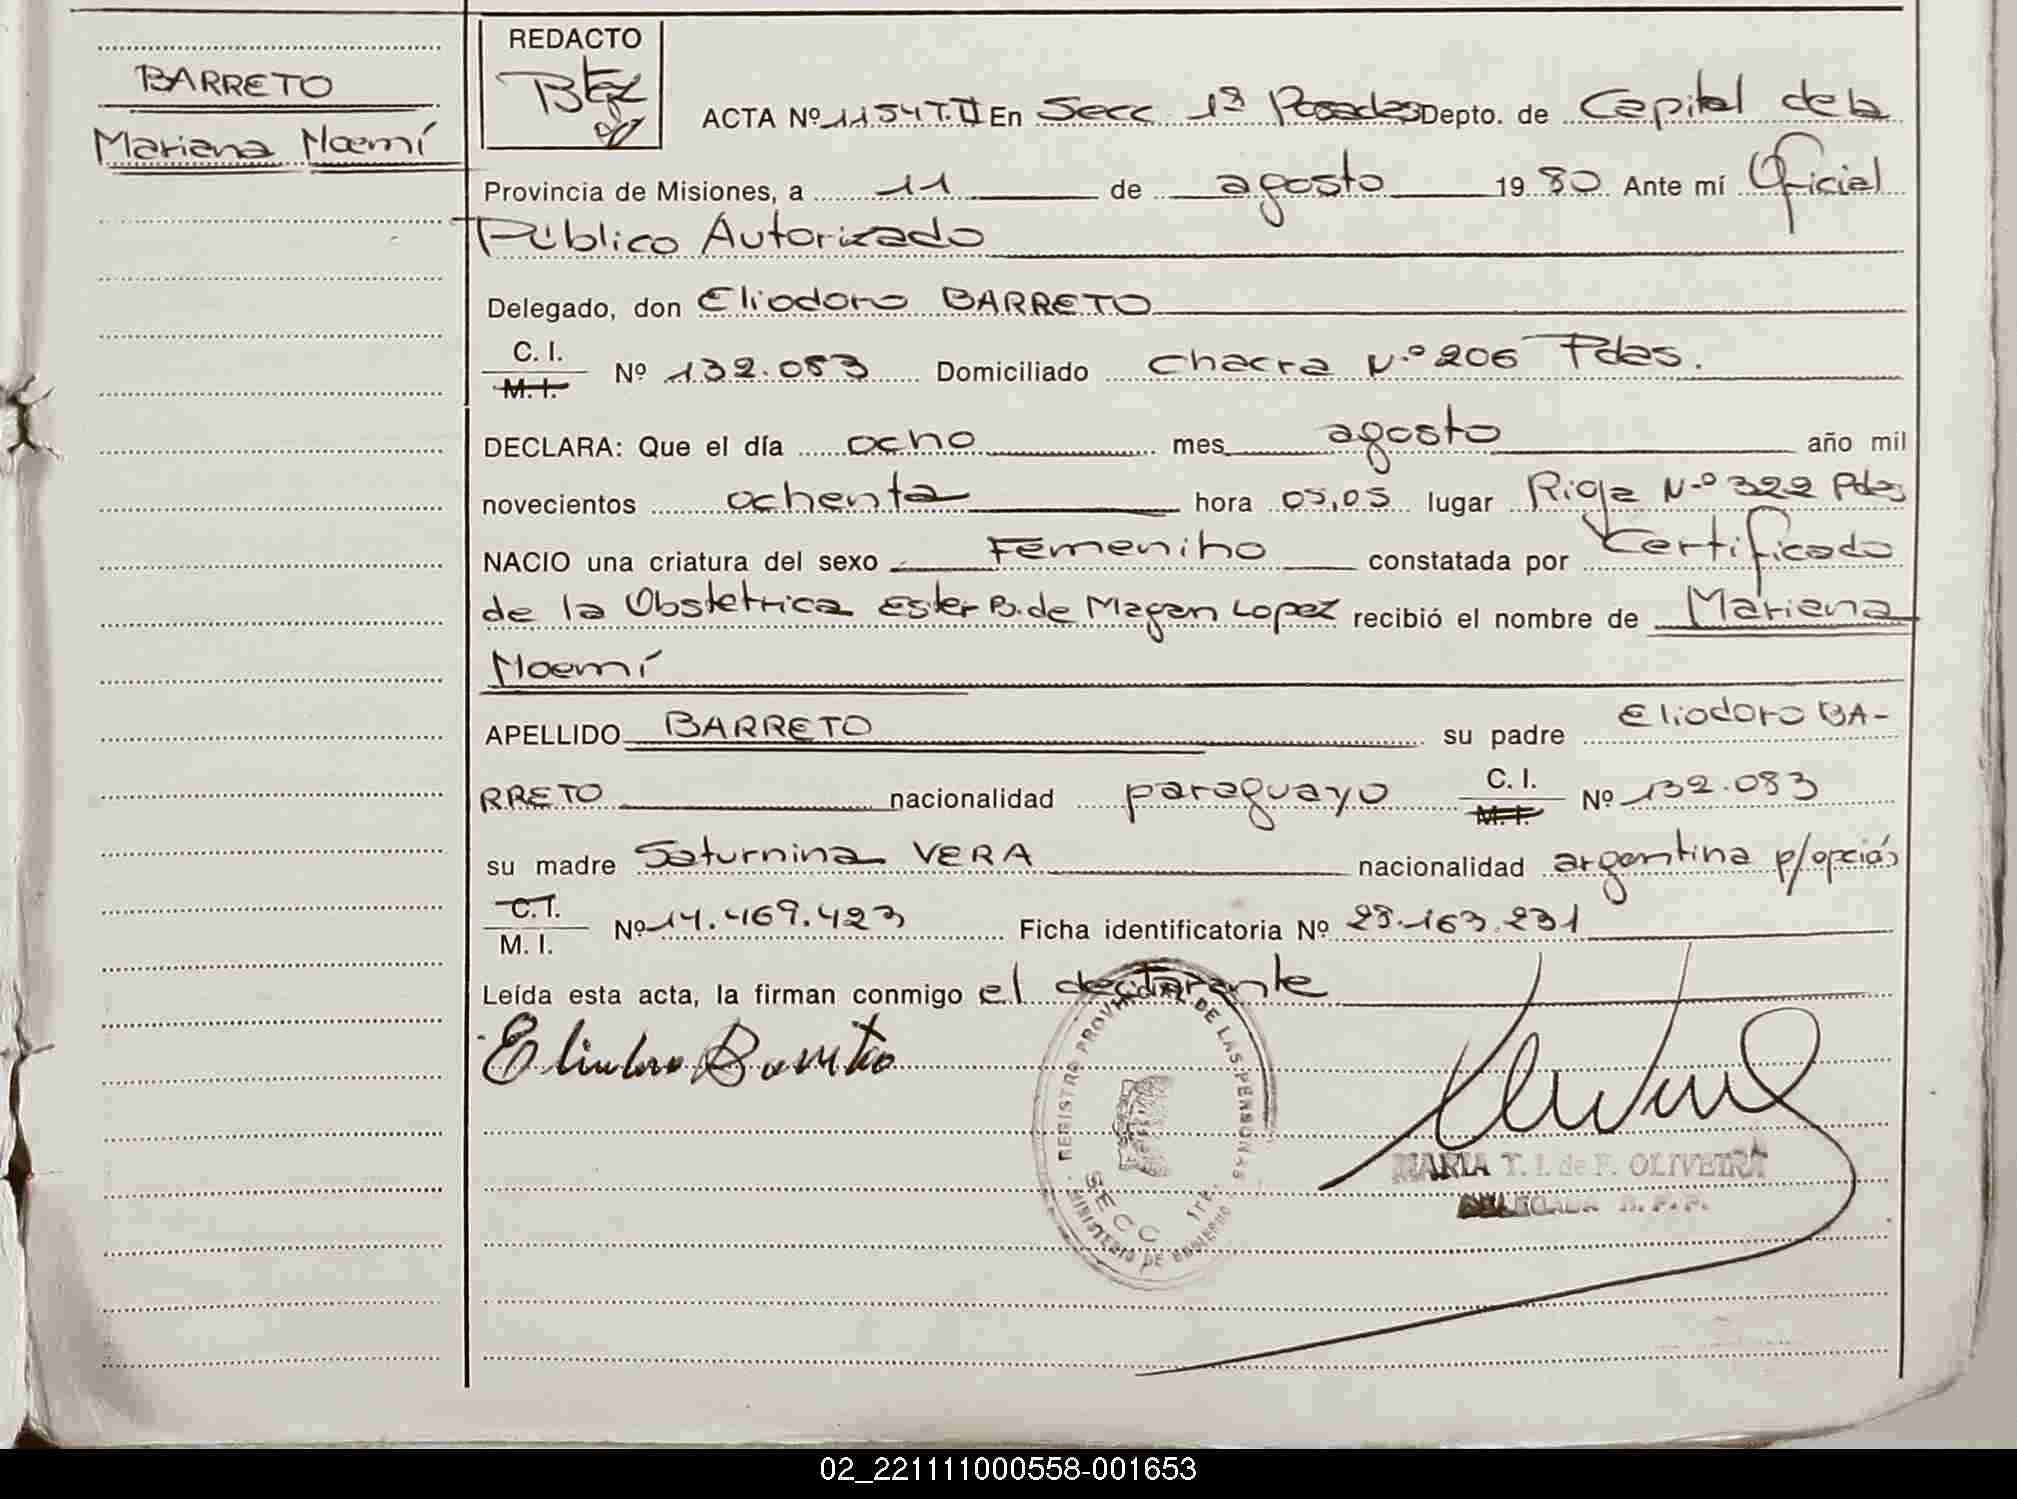 BARRETO
Mariana Noemí
REDACTO
ACTA Nº 1154 T.II En Secc 1ª Posadas Depto. de Capital de la
Provincia de Misiones, a 11 de agosto 1980 Ante mí Oficial
Público Autorizado
Delegado, don Eliodoro BARRETO
C. I.
M. I. Nº 132.083 Domiciliado Chacra N.º 206 Pdas.
DECLARA: Que el día ocho mes agosto año mil
novecientos ochenta hora 05,05 lugar Rioja N.º 322 Pdas
NACIO una criatura del sexo Femenino constatada por Certificado
de la Obstetrica Ester B. de Magan Lopez recibió el nombre de Mariana
Noemí
APELLIDO BARRETO su padre Eliodoro BA-
RRETO nacionalidad paraguayo C. I. M. I. Nº 132.083
su madre Saturnina VERA nacionalidad argentina p/opción
C. I.
M. I. Nº 14.469.423 Ficha identificatoria Nº 28.163.231
Leída esta acta, la firman conmigo el declarante
Eliodoro Barreto
REGISTRO PROVINCIAL DE LAS PERSONAS
SECC 1ra.
MINISTERIO DE GOBIERNO
MARIA T. I. de F. OLIVEIRA
DELEGADA R. P. P.
02_221111000558-001653